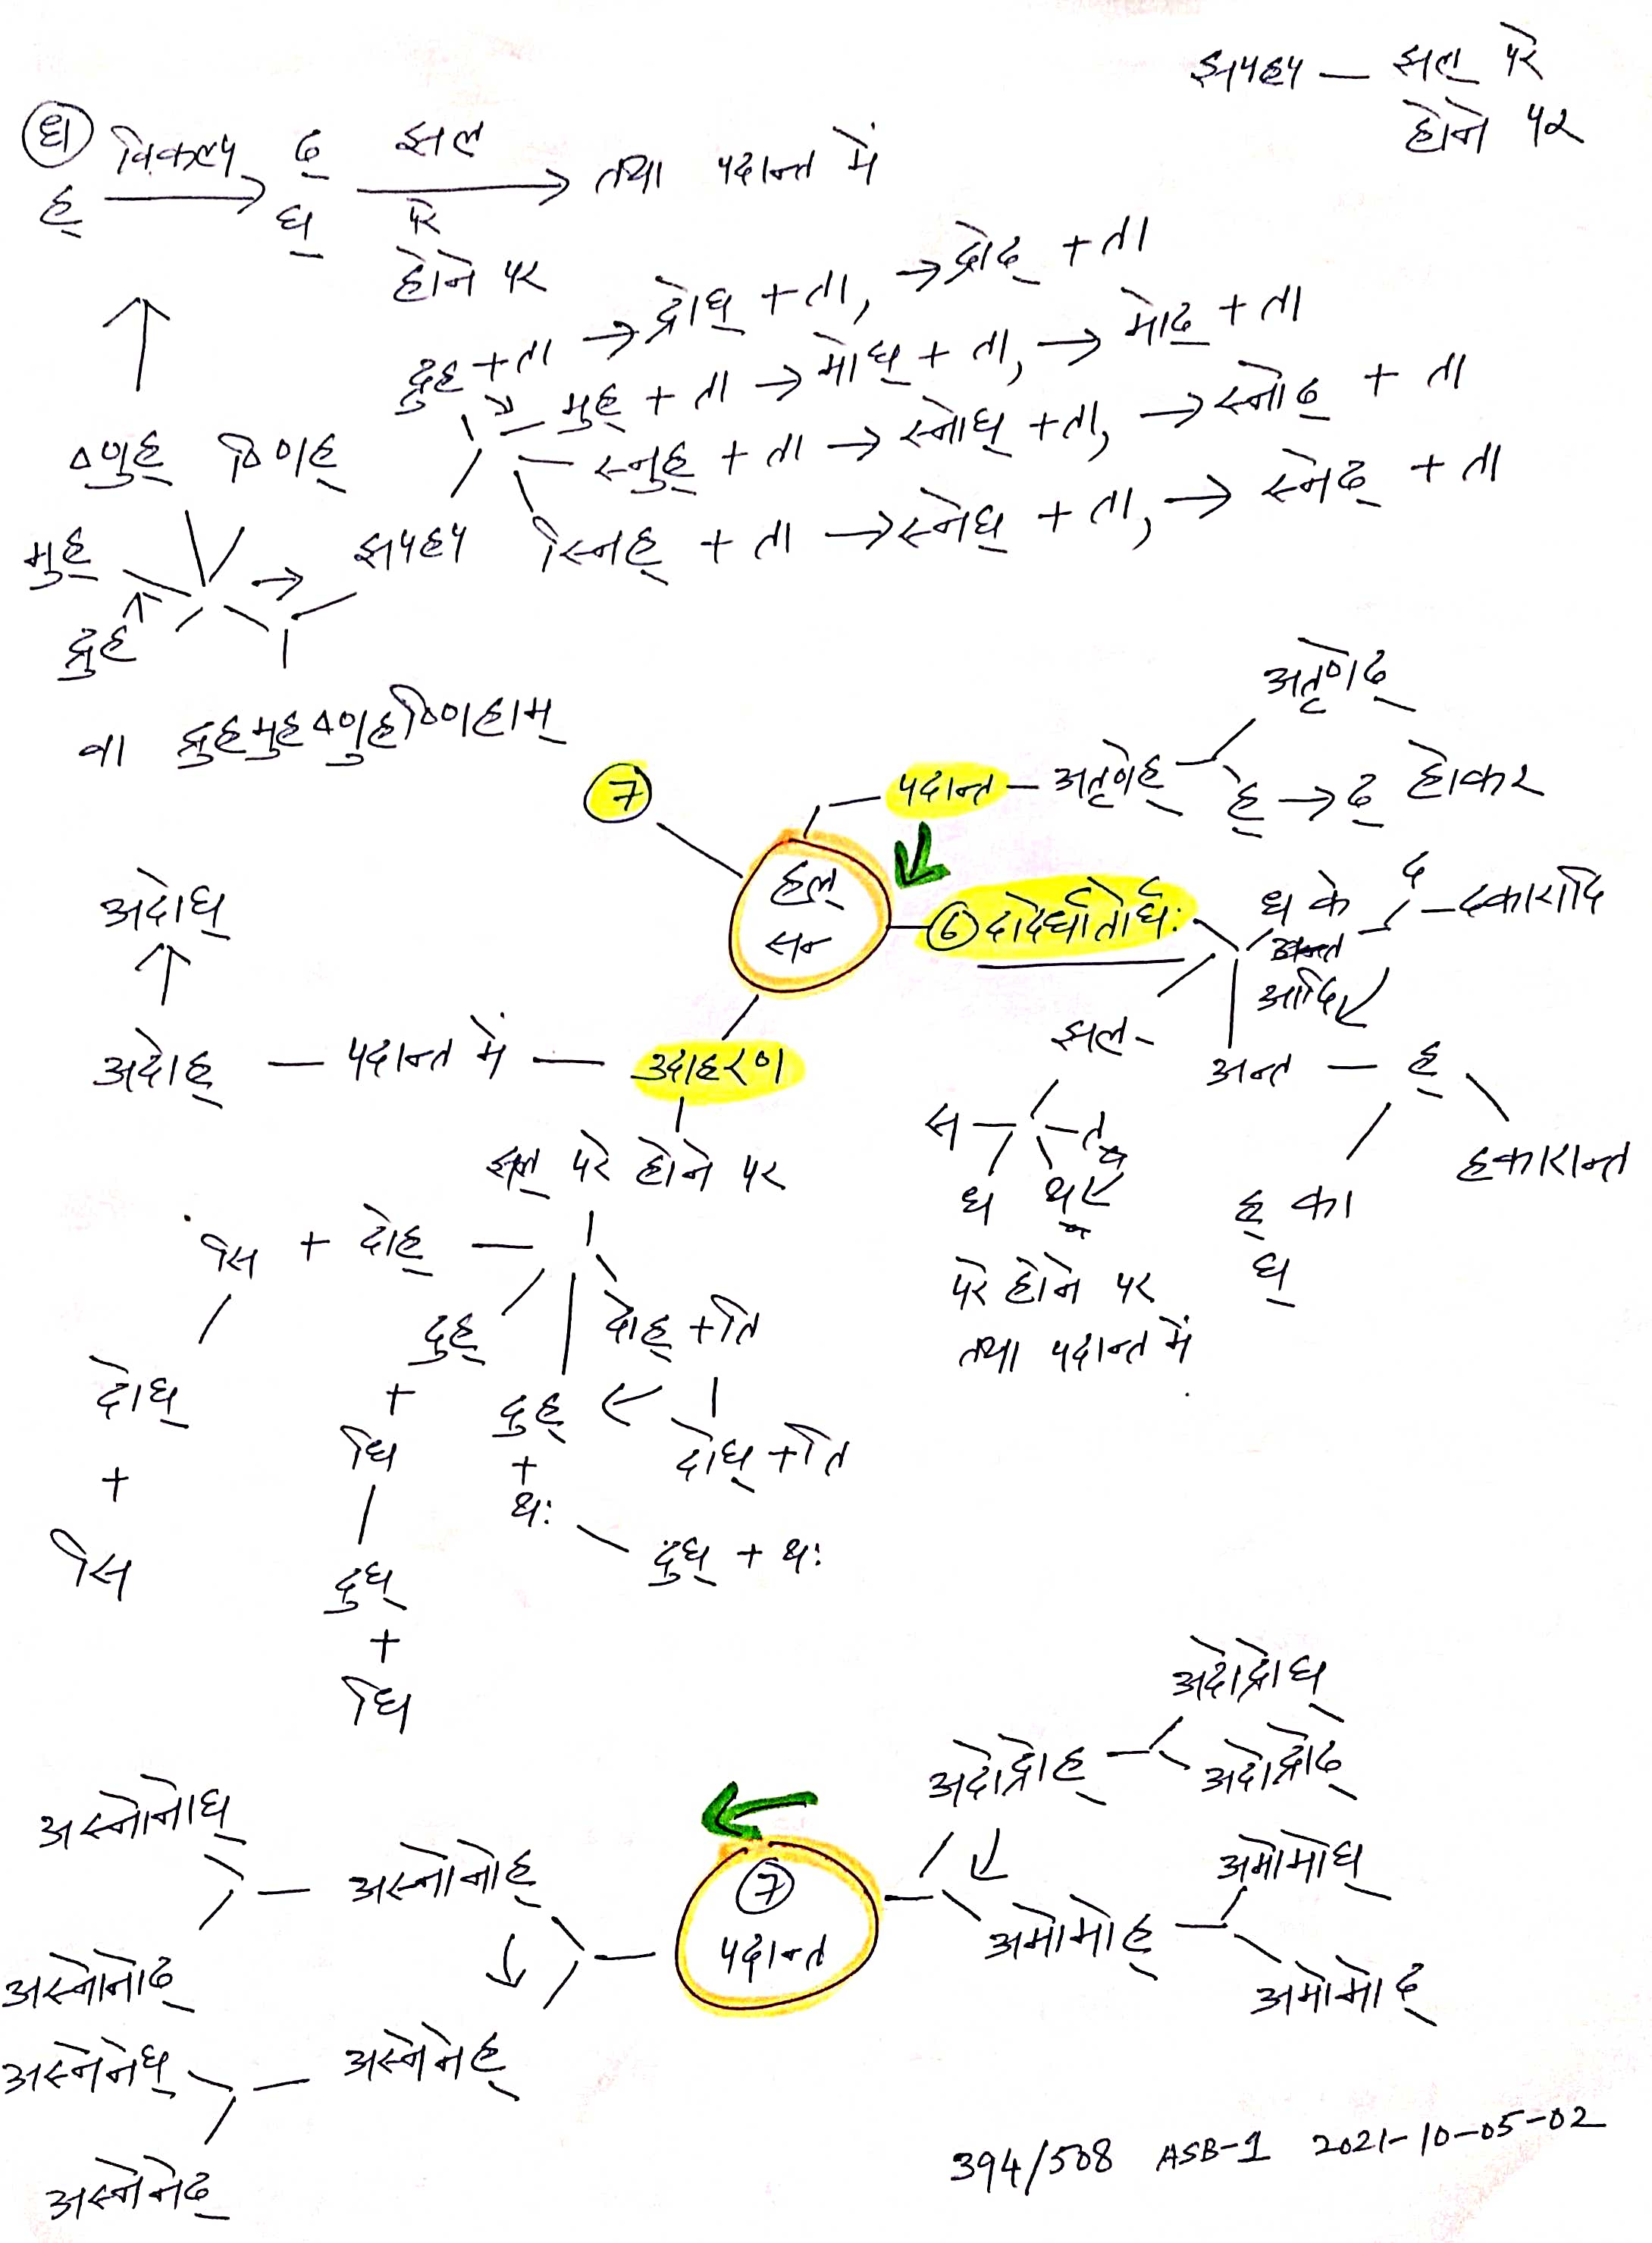 झपहप — झल् परे
होने पर
(घ)
ह् विकल्प → ढ् घ् झल परे होने पर → तथा पदान्त में
द्रुह + ता → द्रोघ् + ता, → द्रोढ् + ता
मुह् + ता → मोघ् + ता, → मोढ् + ता
स्नुह् + ता → स्नोघ् + ता, → स्नोढ् + ता
स्निह् + ता → स्नेघ् + ता, → स्नेढ् + ता
ष्णुह् ष्णिह्
मुह्
झपहप
द्रुह
वा द्रुहमुहष्णुहष्णिहाम्
7
हल्
सन्
पदान्त — अतृणेह्
अतृणेढ्
ह् → ढ् होकर
6 दादेर्धातोर्घः
ध के
आदि
द — दकारादि
अन्त — ह्
हकारान्त
ह् का
घ्
झल -
स — त
ध थ
परे होने पर
तथा पदान्त में
उदाहरण
पदान्त में — अदोह्
अदोघ्
झल् परे होने पर
सि + दोह्
दोघ्
+
सि
दुह्
+
धि
दुघ्
+
धि
दुह्
+
थः
दुघ् + थः
दोह् + ति
दोघ् + ति
7
पदान्त
अदोद्रोह्
अदोद्रोघ्
अदोद्रोढ्
अमोमोह्
अमोमोघ्
अमोमोढ्
अस्नोनोह्
अस्नोनोघ्
अस्नोनोढ्
अस्नेनेह्
अस्नेनेघ्
अस्नेनेढ्
394/508 ASB-1 2021-10-05-02